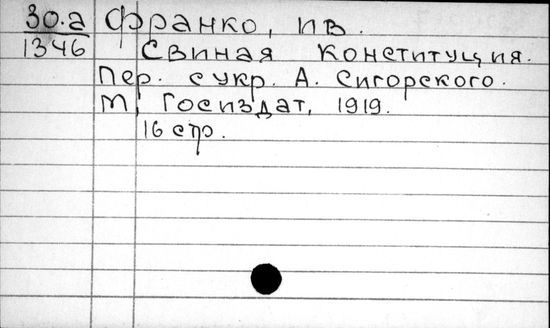 30.а Франко, Ив.
1346 Свиная конституция.
Пер. с укр. А. Сигорского.
М, Госиздат, 1919.
16 стр.